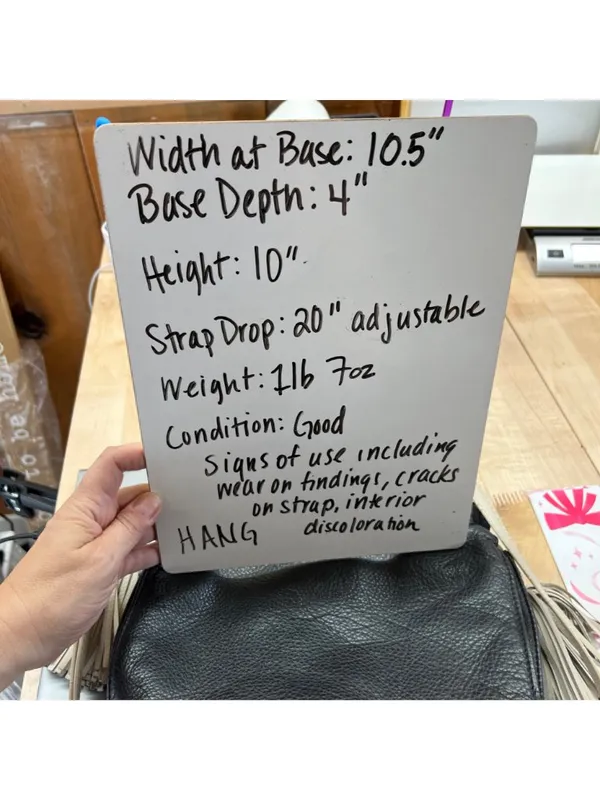 Width at Base: 10.5"
Base Depth: 4"
Height: 10"
Strap Drop: 20" adjustable
Weight: 1lb 7oz
Condition: Good
Signs of use including
wear on findings, cracks
on strap, interior
discoloration
HANG
to be home